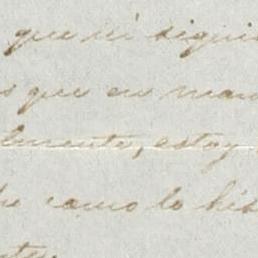 que ni sigui
s que en man
lmente, estoy
he como lo his
nte.